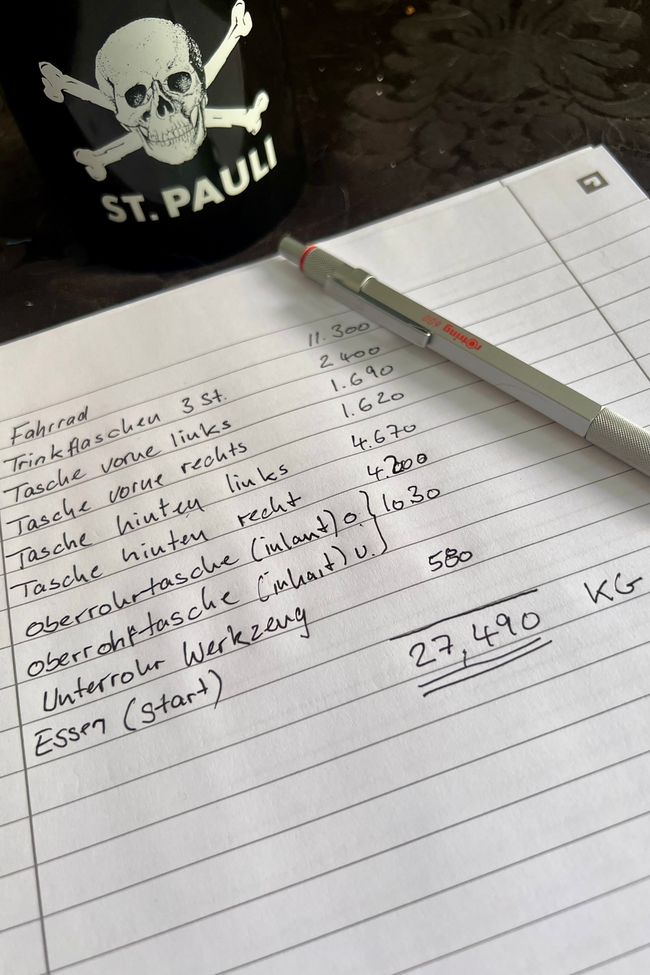 ST. PAULI
rotring 600
Fahrrad 11.300
Trinkflaschen 3 St. 2400
Tasche vorne links 1.690
Tasche vorne rechts 1.620
Tasche hinten links 4.670
Tasche hinten recht 4.200
Oberrohrtasche (inlant) o. } 1030
Oberrohrtasche (inhalt) u.
Unterrohr Werkzeug 580
Essen (Start)
27,490 KG